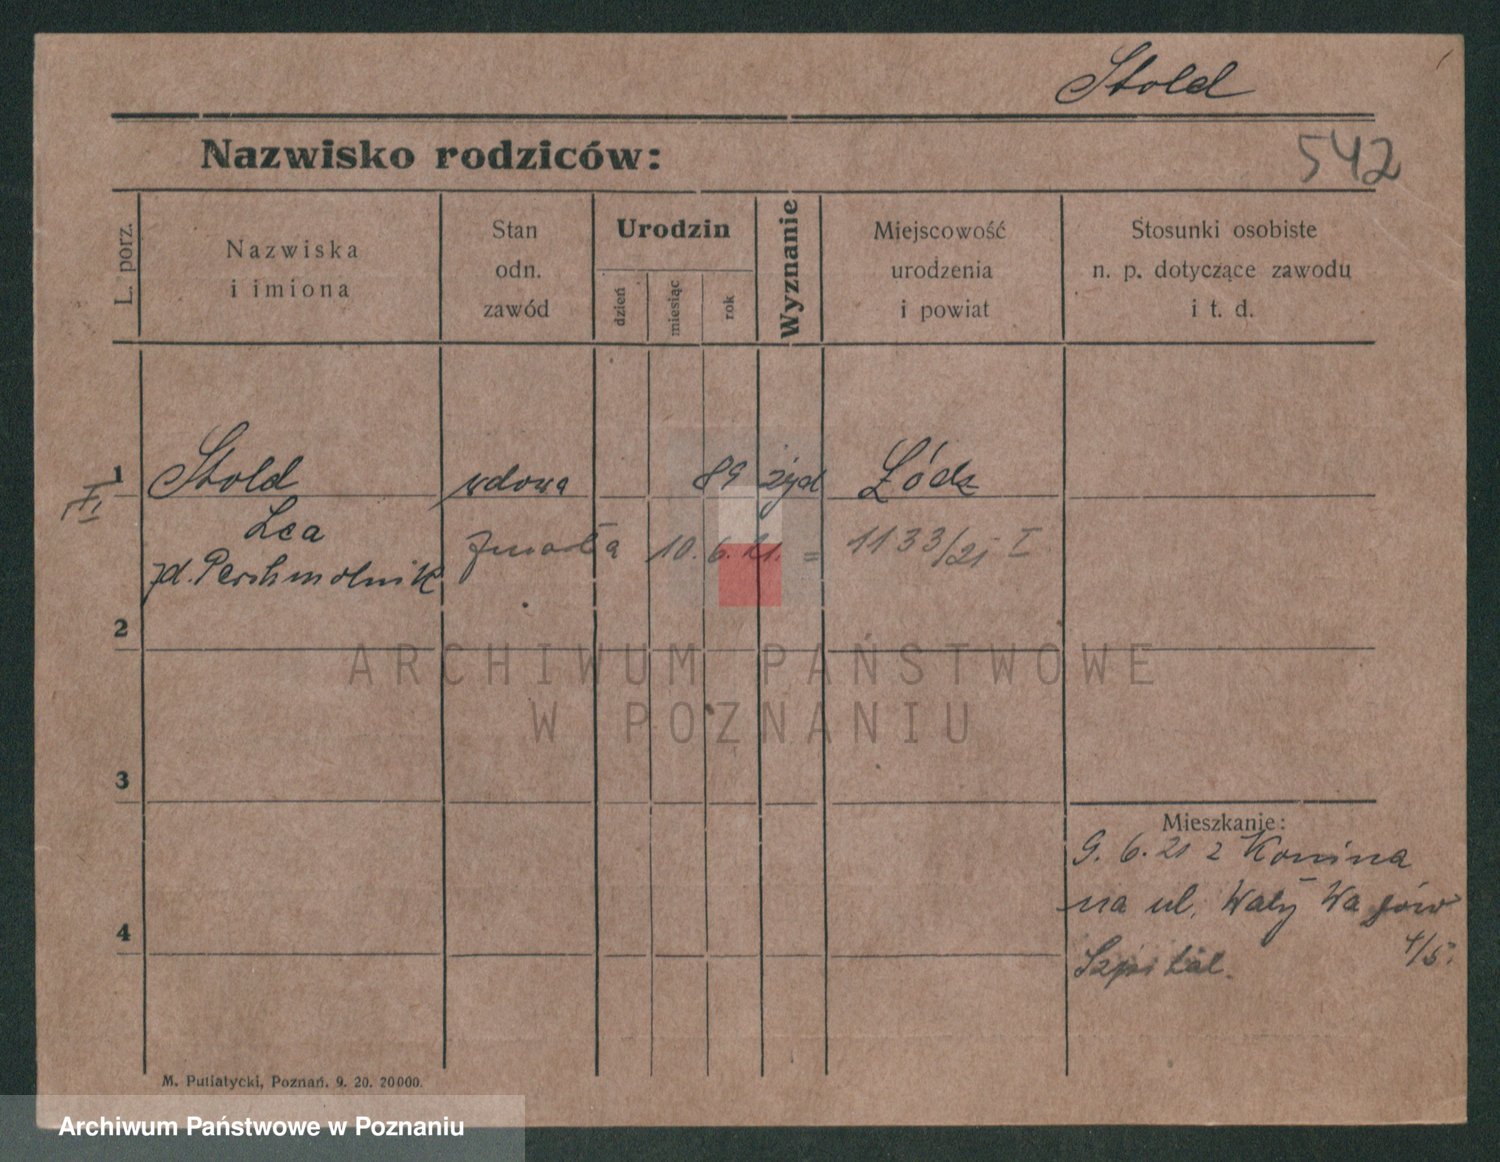 Stold
Nazwisko rodziców:
542
L. porz.
Nazwiska
i imiona
Stan
odn.
zawód
Urodzin
dzień
miesiąc
rok
Wyznanie
Miejscowość
urodzenia
i powiat
Stosunki osobiste
n. p. dotyczące zawodu
i t. d.
1 Stold wdowa 89 żyd Łódz
Lea
zmarła 10. 6. 21. = 1133/21 I
zd. Perchmolnik
2
ARCHIWUM PAŃSTWOWE
W POZNANIU
3
Mieszkanie:
9. 6. 21 z Konina
na ul. Wały
4
Szpital. 4/5.
M. Putiatycki, Poznań. 9. 20. 20000.
Archiwum Państwowe w Poznaniu